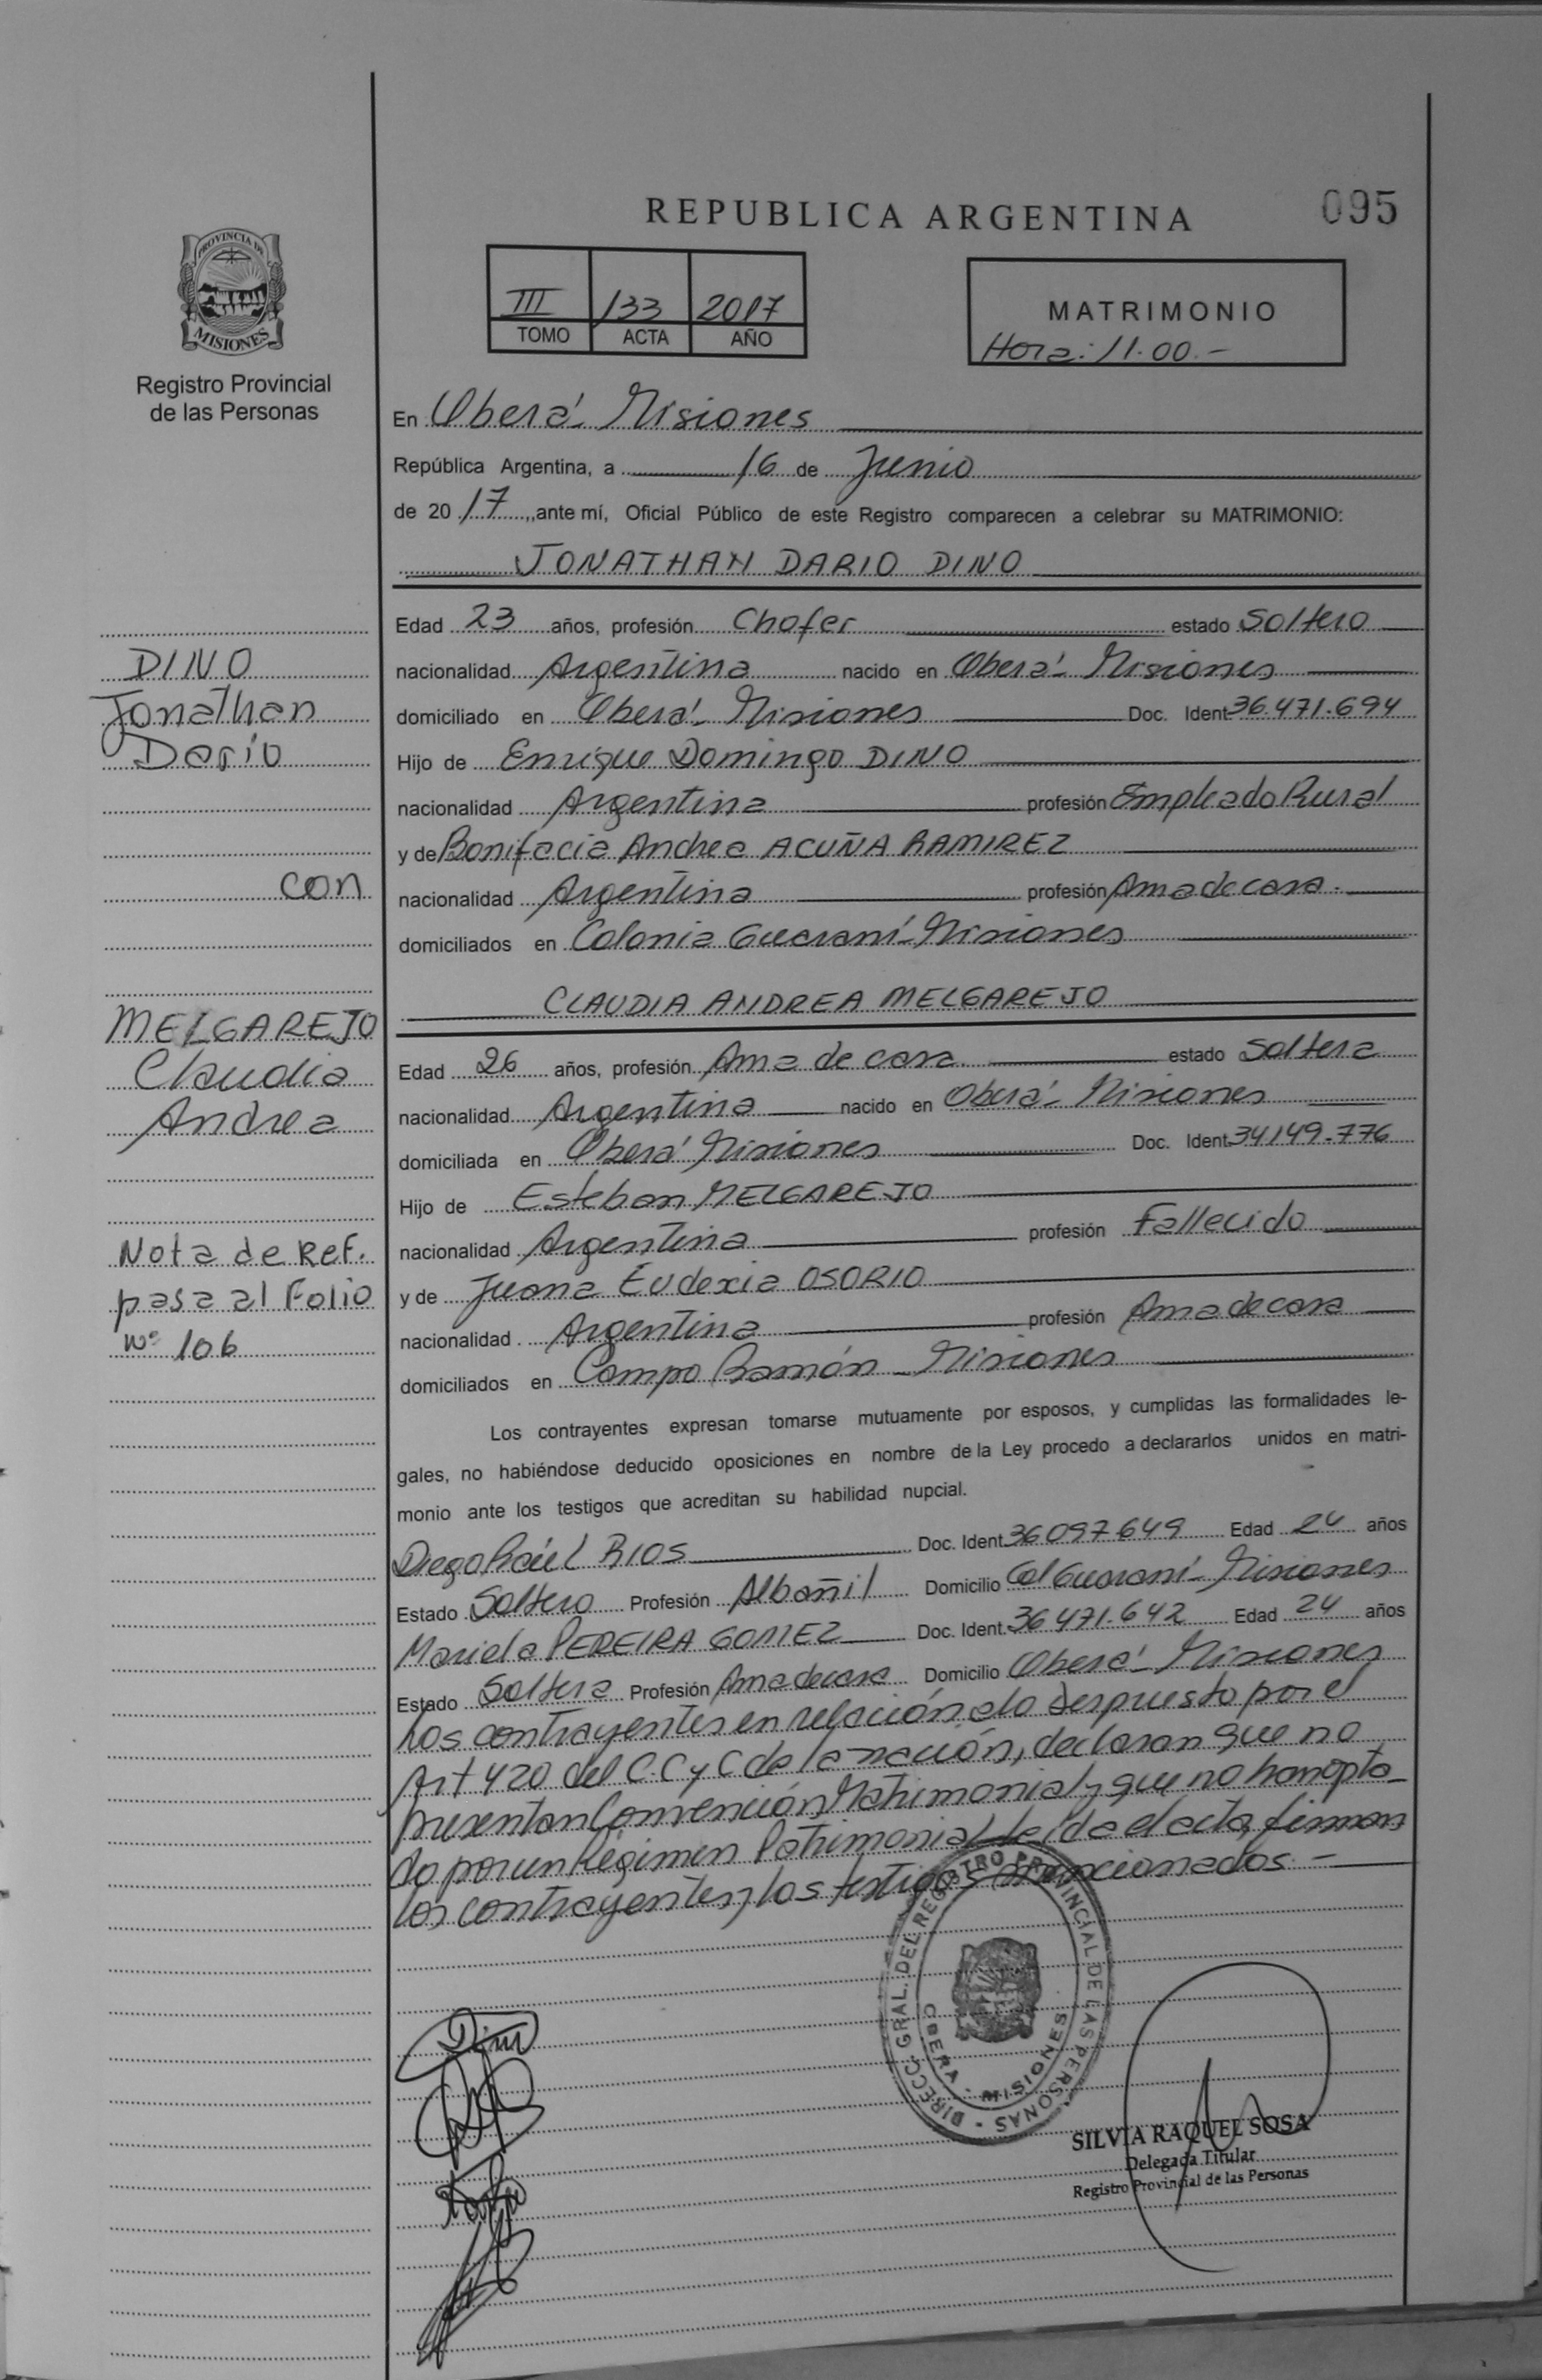 REPUBLICA ARGENTINA
095
PROVINCIA DE
MISIONES
Registro Provincial
de las Personas
III 133 2017
TOMO ACTA AÑO
MATRIMONIO
Hora: 11.00.-
En Oberá - Misiones
República Argentina, a 16 de Junio
de 20 17, ante mí, Oficial Público de este Registro comparecen a celebrar su MATRIMONIO:
JONATHAN DARIO DINO
Edad 23 años, profesión Chofer estado Soltero
nacionalidad Argentina nacido en Oberá - Misiones
domiciliado en Oberá - Misiones Doc. Ident 36.471.694
Hijo de Enrique Domingo DINO
nacionalidad Argentina profesión Empleado Rural
y de Bonifacia Andrea ACUÑA RAMIREZ
nacionalidad Argentina profesión Ama de casa.
domiciliados en Colonia Guaraní - Misiones
CLAUDIA ANDREA MELGAREJO
Edad 26 años, profesión Ama de casa. estado Soltera
nacionalidad Argentina nacido en Oberá - Misiones
domiciliada en Oberá Misiones Doc. Ident 34.149.776
Hijo de Esteban MELGAREJO
nacionalidad Argentina profesión Fallecido
y de Juana Eudexia OSORIO
nacionalidad Argentina profesión Ama de casa
domiciliados en Campo Ramón - Misiones
Los contrayentes expresan tomarse mutuamente por esposos, y cumplidas las formalidades le-
gales, no habiéndose deducido oposiciones en nombre de la Ley procedo a declararlos unidos en matri-
monio ante los testigos que acreditan su habilidad nupcial.
Diego Raúl RIOS Doc. Ident 36.097.649 Edad 24 años
Estado Soltero Profesión Albañil Domicilio Col Guaraní - Misiones
Mariela PEREIRA GOMEZ Doc. Ident. 36.471.642 Edad 24 años
Estado Soltera Profesión Ama de casa Domicilio Oberá - Misiones
Los contrayentes en relación a lo dispuesto por el
Art 420 del C.C y C de la nación, declaran que no
presentan Convención Matrimonial y que no han opta-
do por un Régimen Patrimonial leída el acta, firman
los contrayentes y los testigos mencionados.-
DINO
Jonathan
Dario
con
MELGAREJO
Claudia
Andrea
Nota de Ref.
pasa al Folio
Nº 106
DIRECC. GRAL. DEL REGISTRO PROVINCIAL DE LAS PERSONAS -
OBERA - MISIONES
SILVIA RAQUEL SOSA
Delegada Titular
Registro Provincial de las Personas